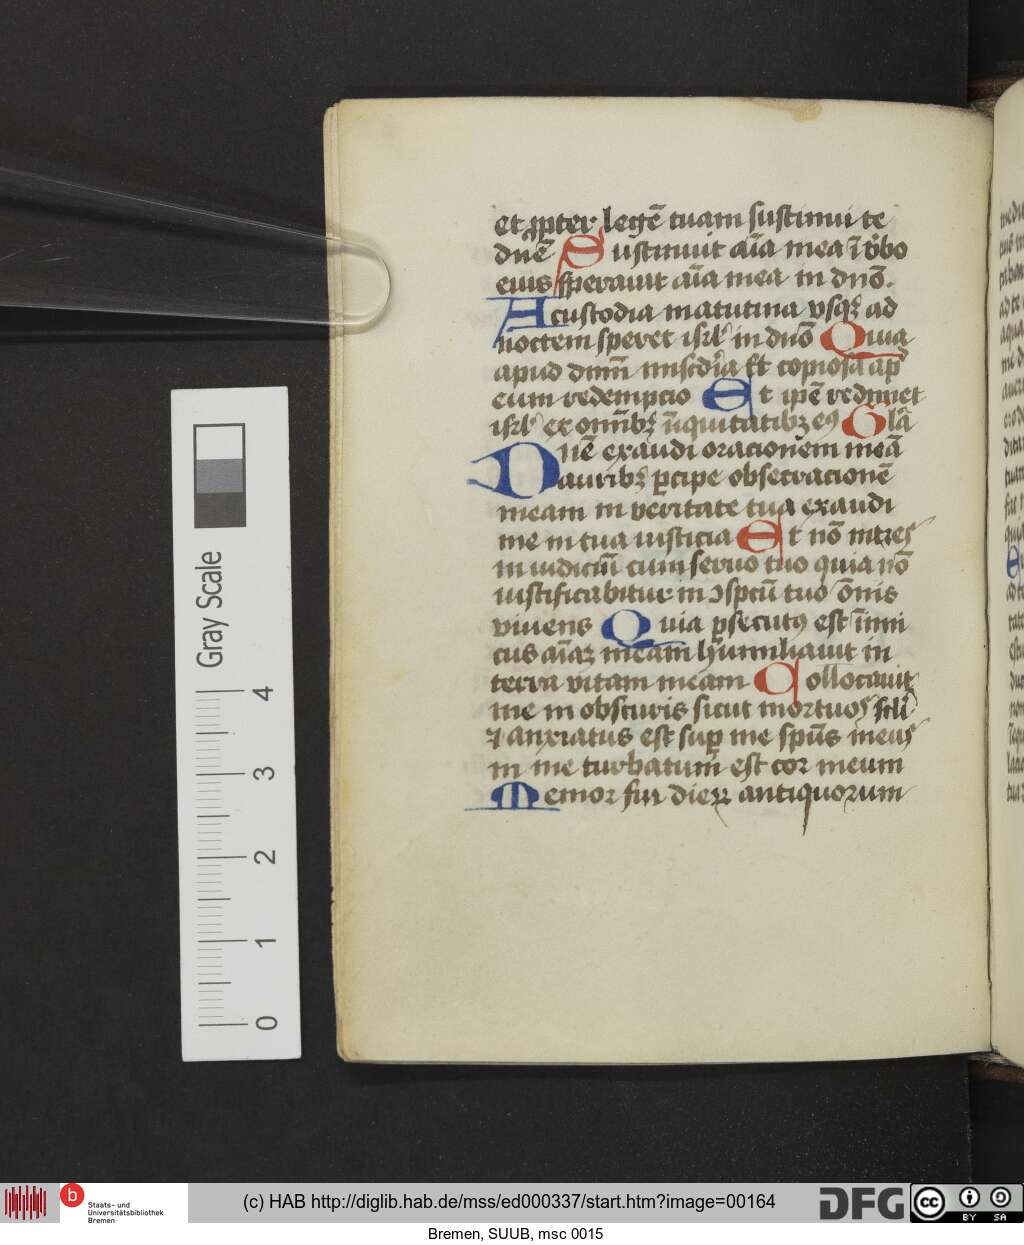 et ꝓpter legē tuam sustinui te
dn̄e Sustinuit aīa mea ī v̉bo
eius sperauit aīa mea in dn̄o.
A custodia matutina vsqꝫ ad
noctem speret isrl̉ in dn̄o Quia
apud dnm̄ mīscd̉ia Et copiosa ap̉
eum redempcio Et ip̄e redimet
isrl̉ ex om̄ibꝫ īiquitatibꝫ eꝰ Gl̄a
Dn̄e exaudi oracionem meā
auribꝫ ꝑcipe obsecracionē
meam in veritate tua exaudi
me in tua iusticia Et nō intres
in iudiciū cum seruo tuo quia nō
iustificabitur in ꝯspcū tuo ōnis
viuens Quia ꝑsecutꝰ est īimi
cus aīaꝫ meam hūmiliauit in
terra vitam meam Collocauit
me in obscuris sicut mortuos scl̉i
⁊ anxiatus est suꝑ me spūs meus
in me turbatum est cor meum
Memor fui dieꝝ antiquorum
Gray Scale
4
3
2
1
0
b Staats- und
Universitätsbibliothek
Bremen
(c) HAB http://diglib.hab.de/mss/ed000337/start.htm?image=00164
DFG
cc BY SA
Bremen, SUUB, msc 0015